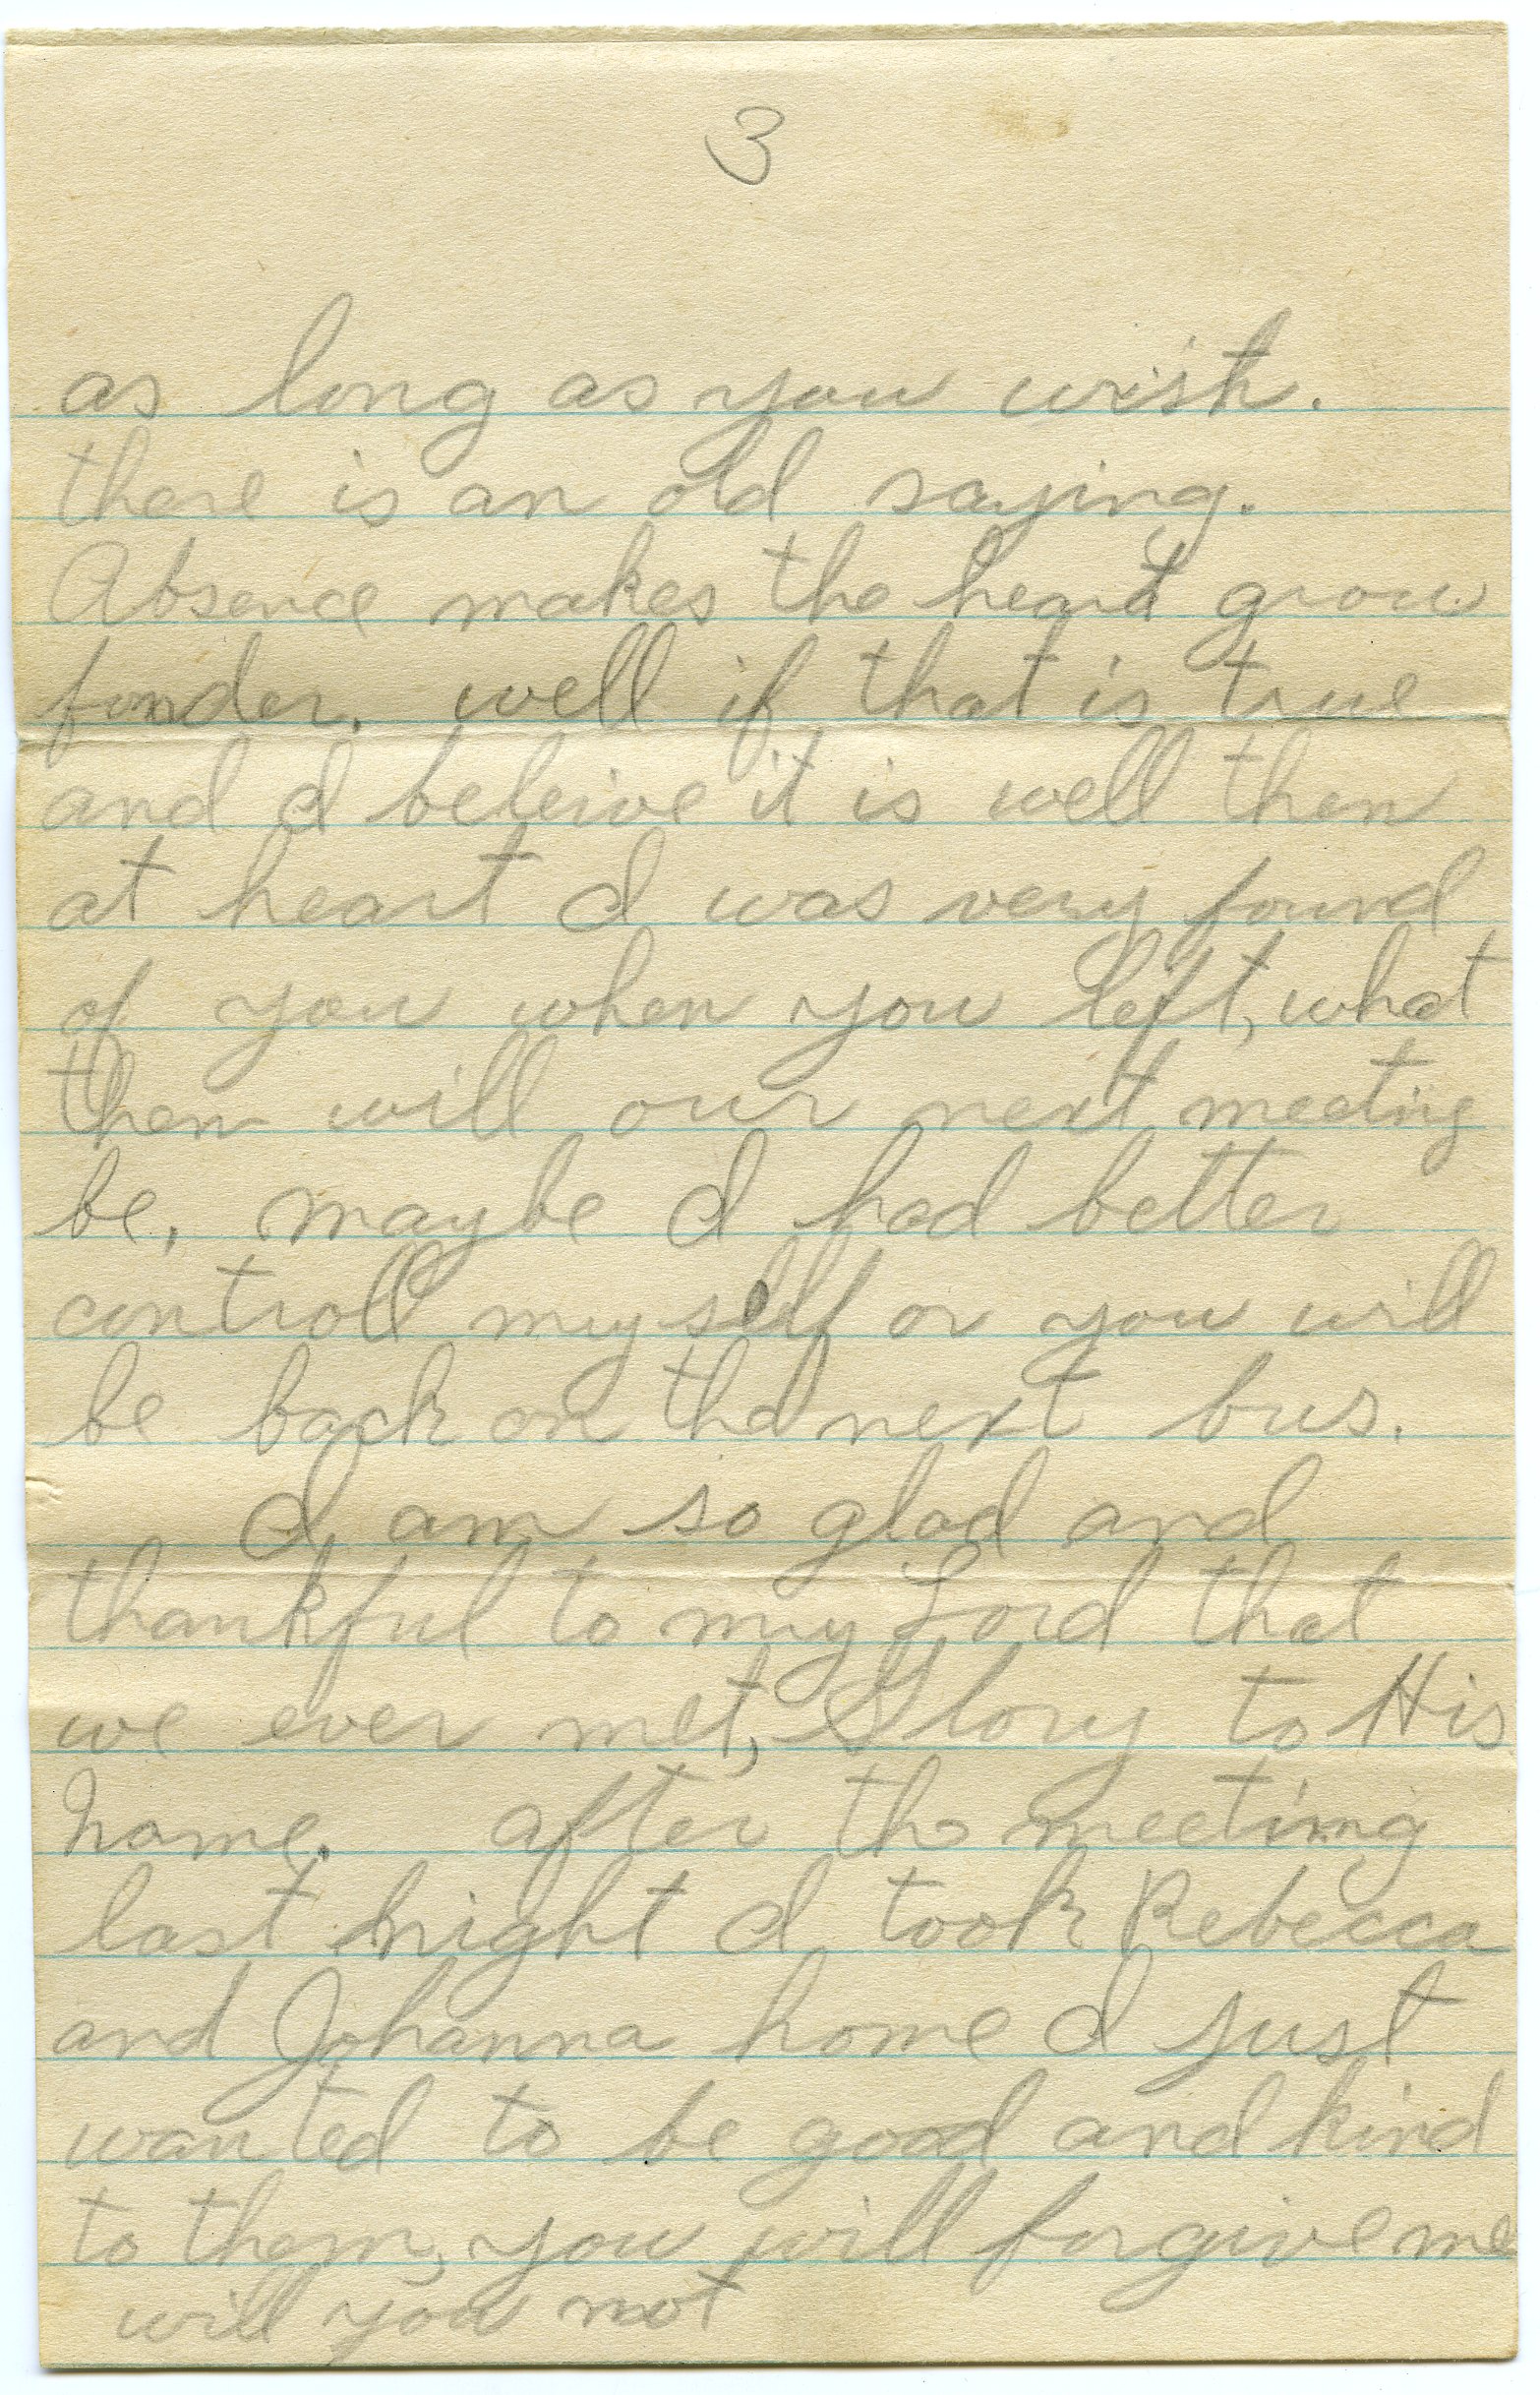 3
as long as you wish.
there is an old saying.
Absence makes the heart grow
fonder. well if that is true
and I beleive it is well then
at heart I was very found
of you when you left, what
then will our next meeting
be, maybe I had better
controll myself or you will
be back on the next bus.
I am so glad and
thankful to my Lord that
we ever met, Glory to His
name. after the meeting
last night I took Rebecca
and Johanna home I just
wanted to be good and kind
to them, you will forgive me
will you not